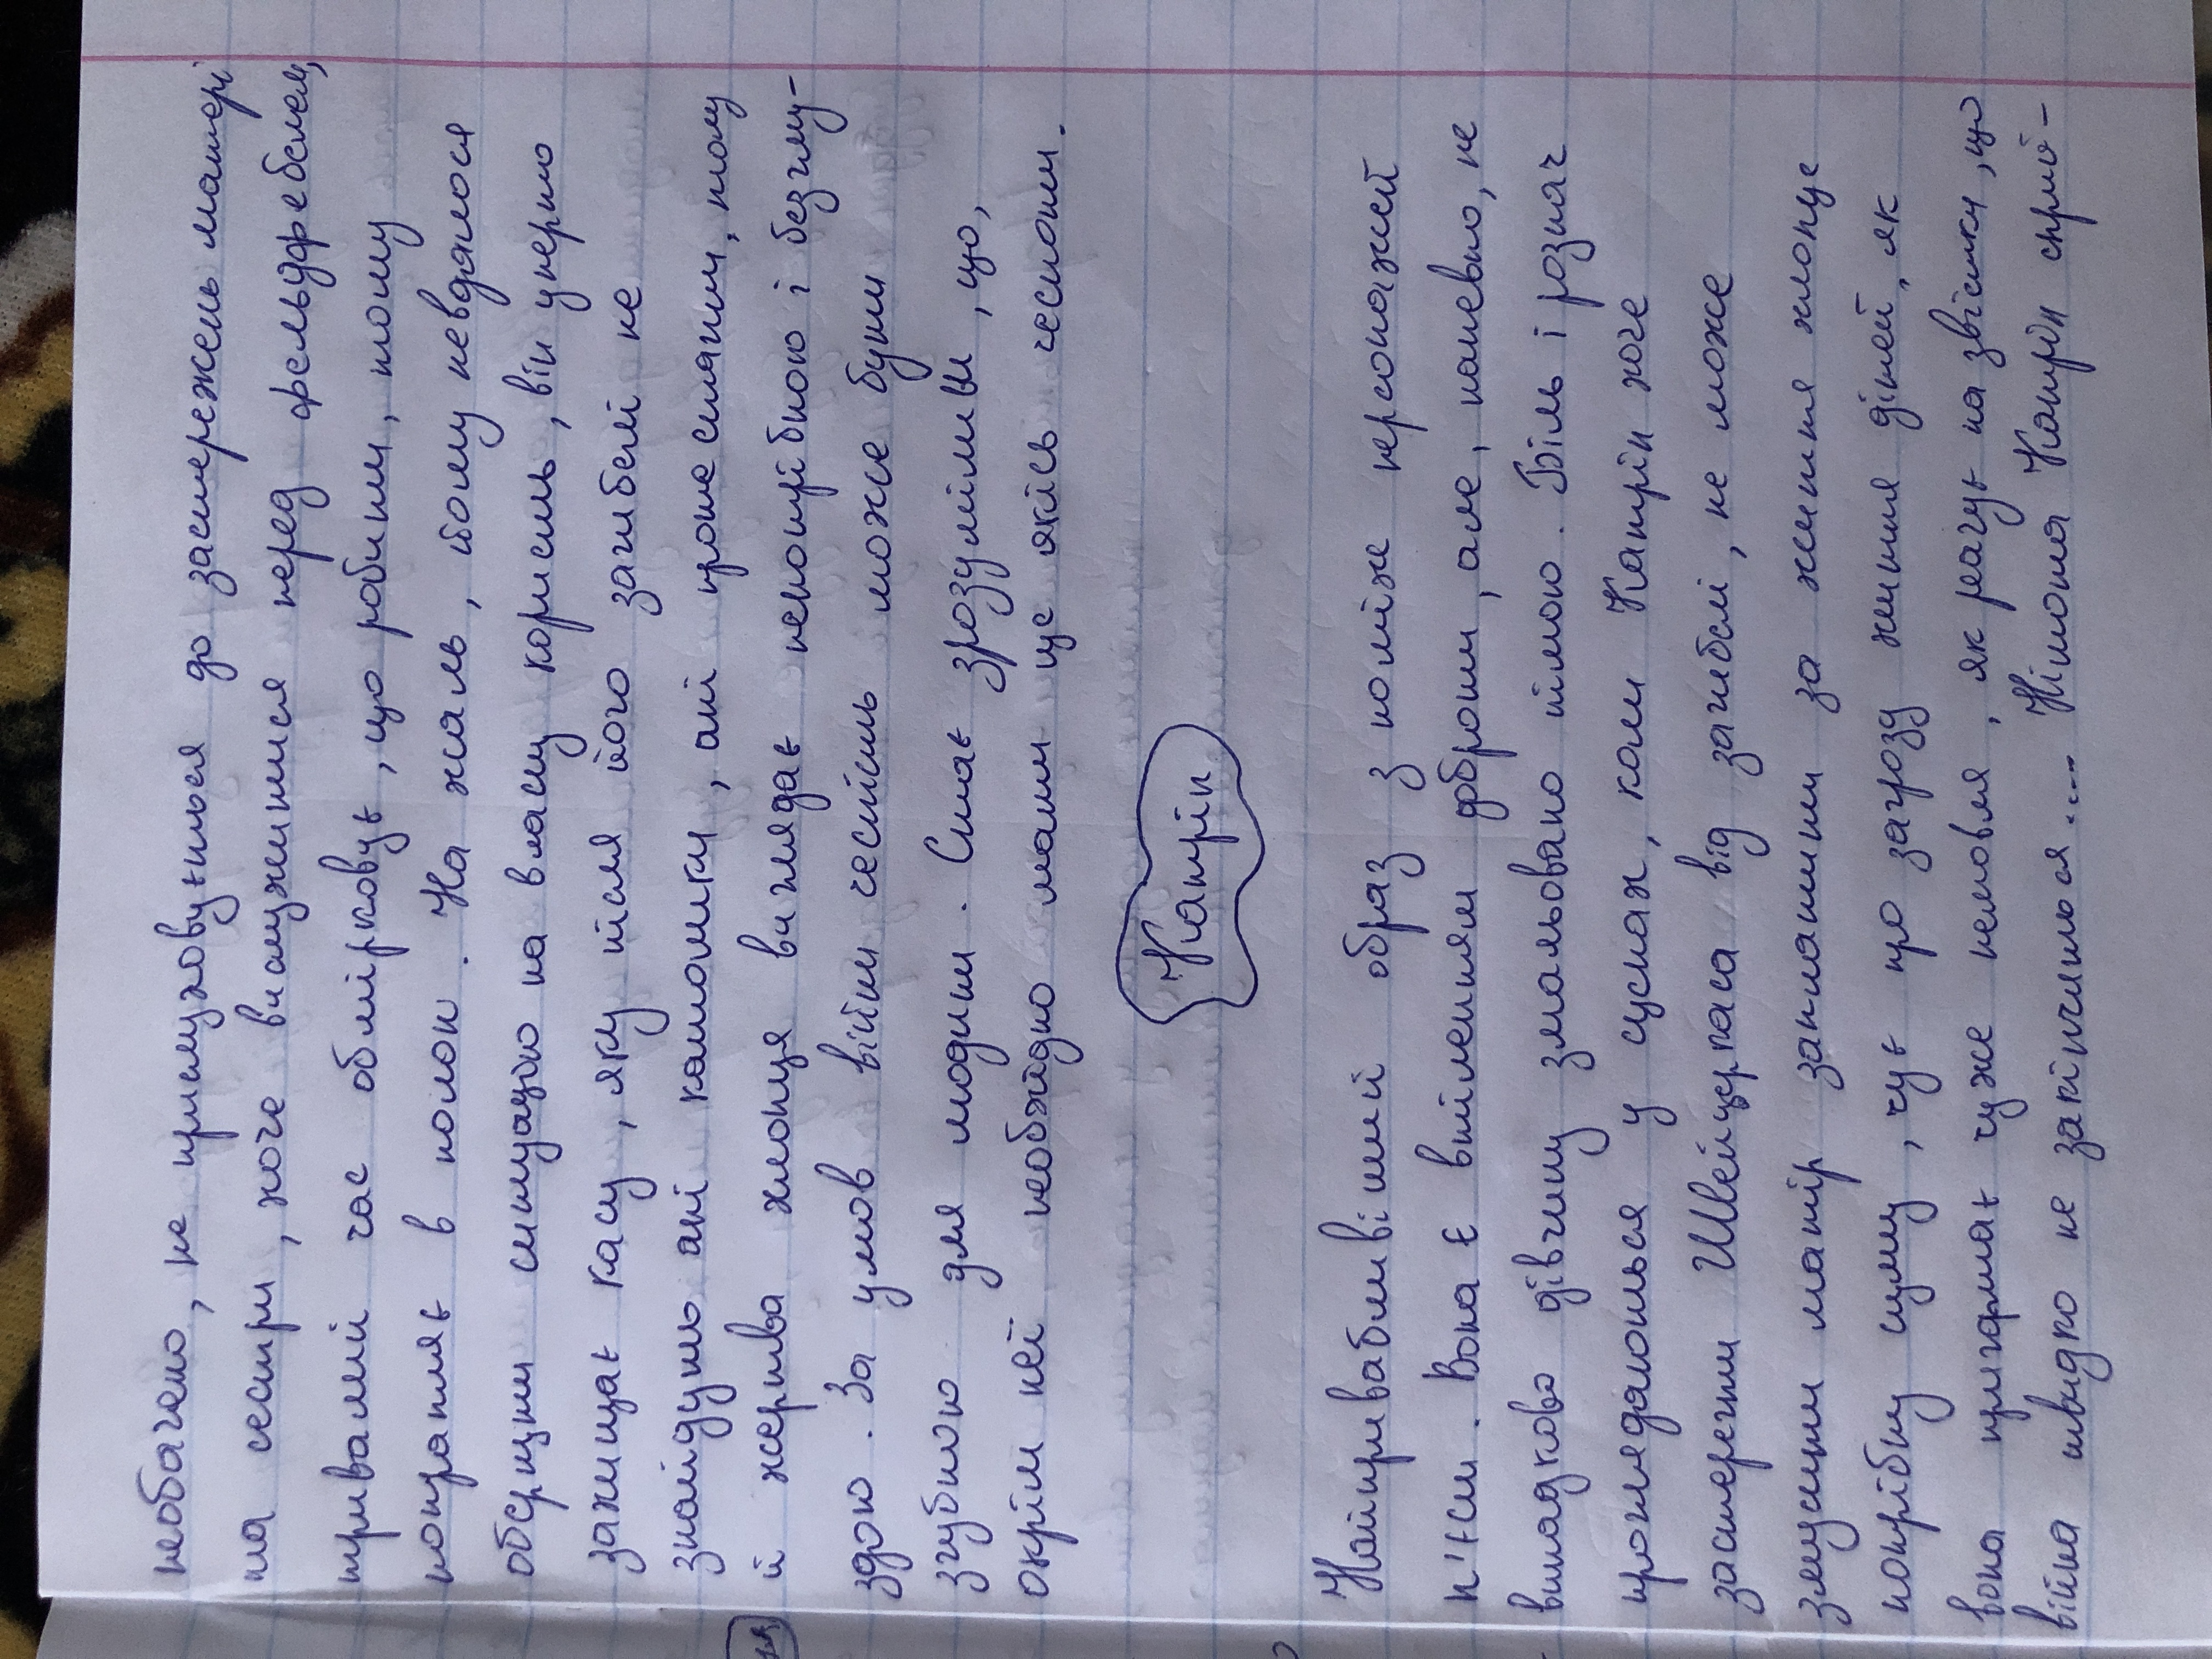 необачно, не прислуховується до застережень матері
та сестри, хоче вислужитися перед фельдфебелем,
тривалий час обмірковує, що робити, тому
потрапляє в полон. На жаль, йому невдалося
обернути ситуацію на власну користь, він уперто
захищає касу, яку після його загибелі не
знайдуть ані католики, ані протестанти, тому
й жертва хлопця виглядає непотрібною і безглу-
здою. За умов війни чесність може бути
згубною для людини. Стає зрозумілим, що,
окрім неї необхідно мати ще якісь чесноти.
Катрін
Найпривабливіший образ з поміж персонажей
п'єси. Вона є втіленням доброти, але, напевно, не
випадково дівчину змальовано німою. Біль і розпач
проглядаються у сценах, коли Катрін хоче
застерегти Швейцеркаса від загибелі, не може
змусити матір заплатити за життя хлопце
потрібну суму, чує про загрозу життя дітей, як
вона пригортає чуже немовля, як реагує на звістку, що
війна швидко не закінчиться.... Німота Катрін спри-